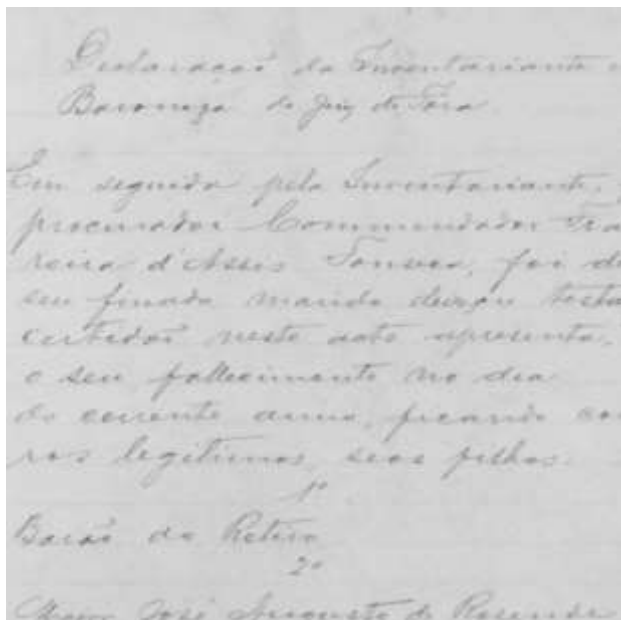 Declaração da Inventariante
Baroneza de Juiz de Fora
Em seguida pela Inventariante,
procurador Commendador Fra
reira d'Assis Fonseca, foi d
seu finado marido deixou testa
certidão neste acto apresenta,
o seu fallecimento no dia
do corrente anno, ficando co
ros legitimos, seos filhos.
1º
Barão do Retiro
2º
José Augusto de Resende